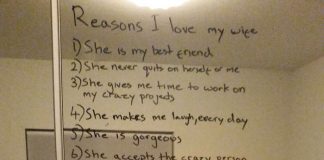 Reasons I love my wife
1) She is my best friend
2) She never quits on herself or me
3) She gives me time to work on
my crazy projects
4) She makes me laugh, every day
5) She is gorgeous
6) She accepts the crazy person